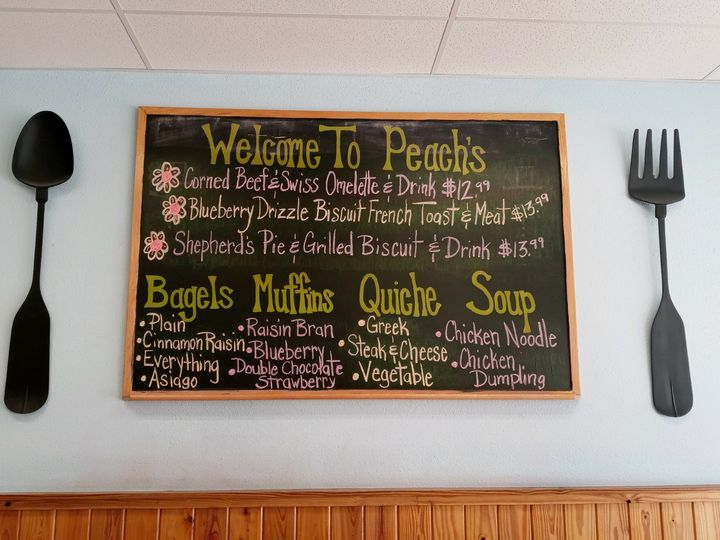 Welcome To Peach's
Corned Beef & Swiss Omelette & Drink $12.99
Blueberry Drizzle Biscuit French Toast & Meat $13.99
Shepherd's Pie & Grilled Biscuit & Drink $13.99
Bagels
• Plain
• Cinnamon Raisin
• Everything
• Asiago
Muffins
• Raisin Bran
• Blueberry
• Double Chocolate
Strawberry
Quiche
• Greek
• Steak & Cheese
• Vegetable
Soup
• Chicken Noodle
• Chicken
Dumpling